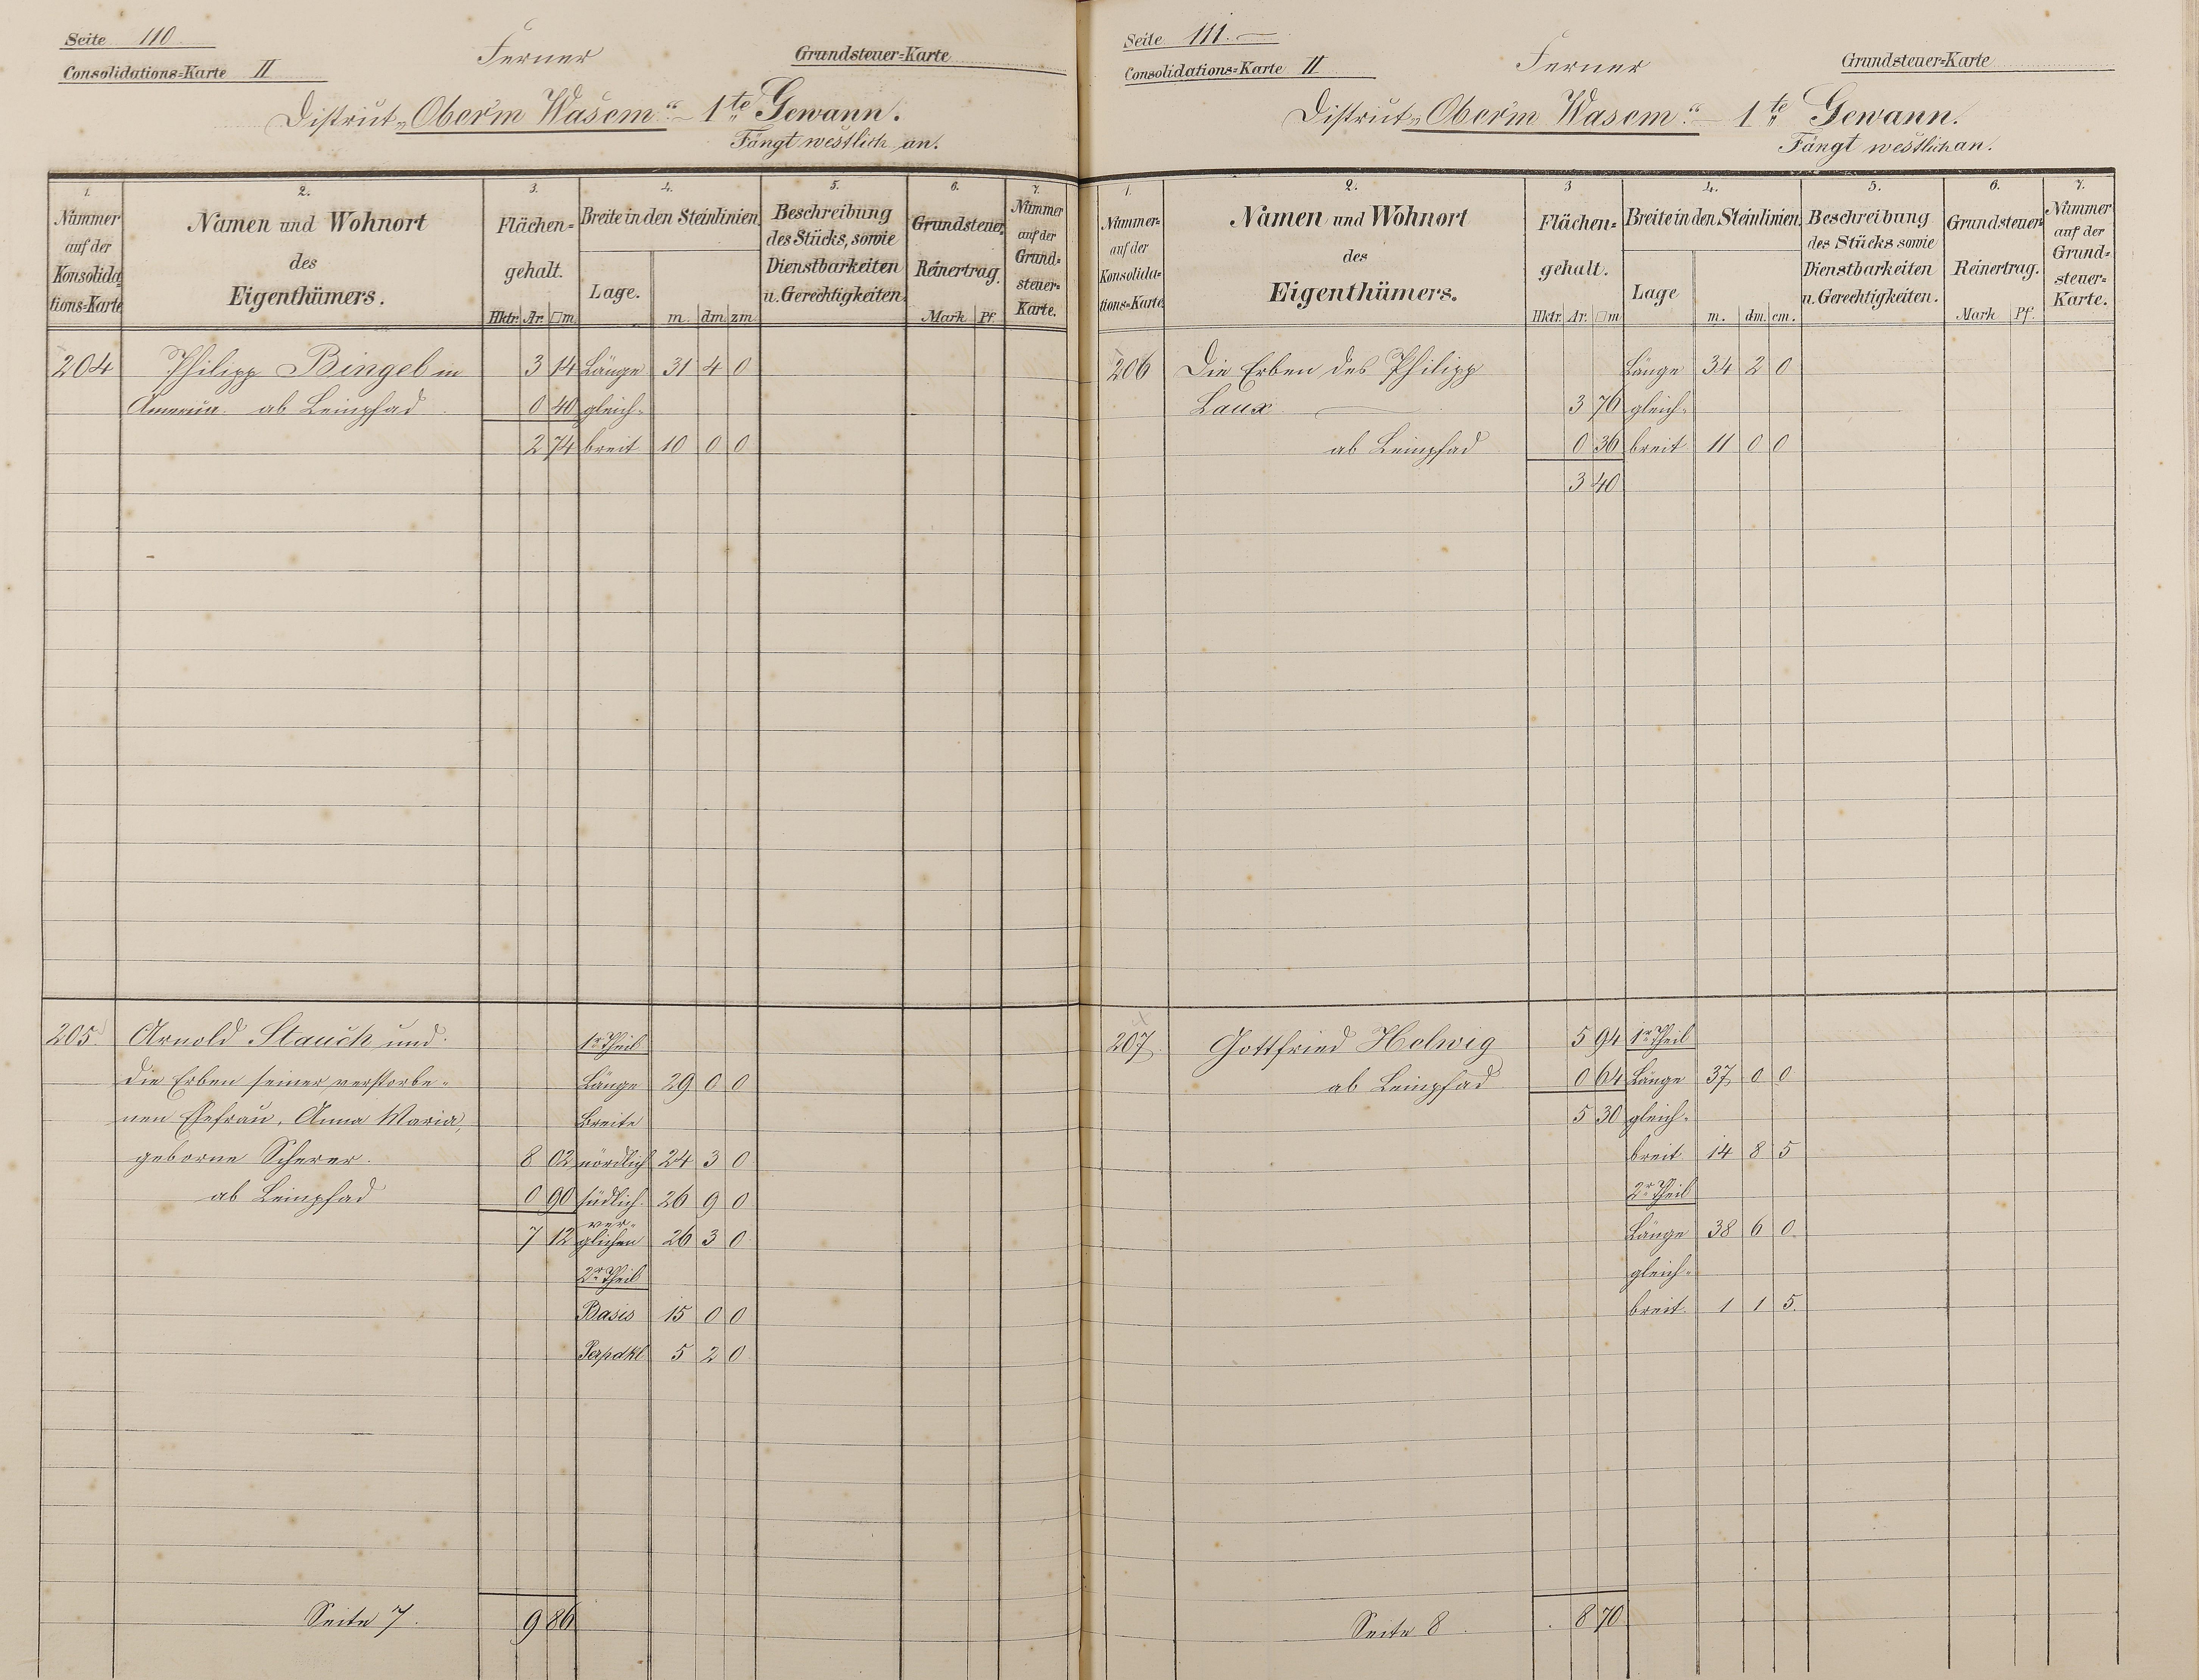 Seite 110
Consolidations=Karte II
Ferner
Grundsteuer=Karte
District „Ober'm Wasem“ – 1te Gewann.
Fängt westlich an.
1. 2. 3. 4. 5. 6. 7.
Nummer auf der Konsolida=tions=Karte
Namen und Wohnort
des
Eigenthümers.
Flächen=
gehalt.
Hktr. Ar. □m
Breite in den Steinlinien.
Lage.
m. dm zm
Beschreibung
des Stücks, sowie
Dienstbarkeiten
u. Gerechtigkeiten.
Grundsteuer
Reinertrag.
Mark Pf.
Nummer
auf der
Grund=
steuer=
Karte.
204 Philipp Bingel in 3 14 Länge 31 4 0
Amerika. ab Leinpfad 0 40 gleich=
2 74 breit 10 0 0
205. Arnold Stauch und 1r Theil
die Erben seiner verstorbe= Länge 29 0 0
nen Ehefrau, Anna Maria, Breite
geborne Scherer. 8 02 nördlich 24 3 0
ab Leinpfad 0 90 südlich 26 9 0
7 12 ver=glichen 26 3 0
2r Theil
Basis 15 0 0
Perpdkl 5 2 0
Seite 7. 9 86
Seite 111.
Consolidations=Karte II
Ferner
Grundsteuer=Karte
District „Ober'm Wasem“ – 1te Gewann.
Fängt westlich an.
1. 2. 3 4. 5. 6. 7.
Nummer=
auf der
Konsolida=
tions=Karte
Namen und Wohnort
des
Eigenthümers.
Flächen=
gehalt.
Hktr. Ar. □m
Breite in den Steinlinien.
Lage
m. dm. cm.
Beschreibung
des Stücks sowie
Dienstbarkeiten
u. Gerechtigkeiten.
Grundsteuer=
Reinertrag.
Mark Pf.
Nummer
auf der
Grund=
steuer=
Karte.
206 Die Erben des Philipp Länge 34 2 0
Laux 3 76 gleich=
ab Leinpfad 0 36 breit 11 0 0
3 40
207. Gottfried Helwig 5 94 1r Theil
ab Leinpfad 0 64 Länge 37 0 0
5 30 gleich=
breit 14 8 5
2r Theil
Länge 38 6 0.
gleich=
breit. 1 1 5.
Seite 8. 8 70